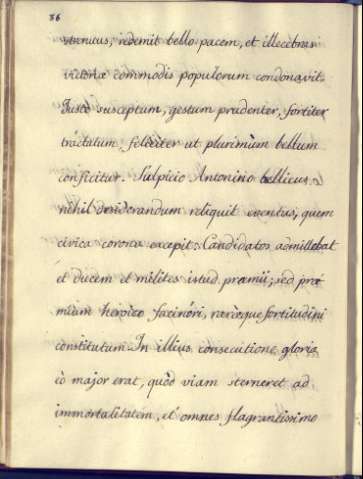 86
unicus, redemit bello pacem, et illecebras
victoriæ commodis populorum condonavit.
Juste susceptum, gestum prudenter, fortiter
tractatum feliciter ut plurimùm bellum
conficitur. Sulpicio Antonino bellicus
nihil desiderandum reliquit eventus, quem
civica corona excepit. Candidatos admittebat
et ducem et milites istud præmii; sed præ
mium heroico facinóri, raræque fortitudini
constitutum. In illius consecutione gloria
eò major erat, quòd viam sterneret ad
immortalitatem, et omnes flagrantissimo